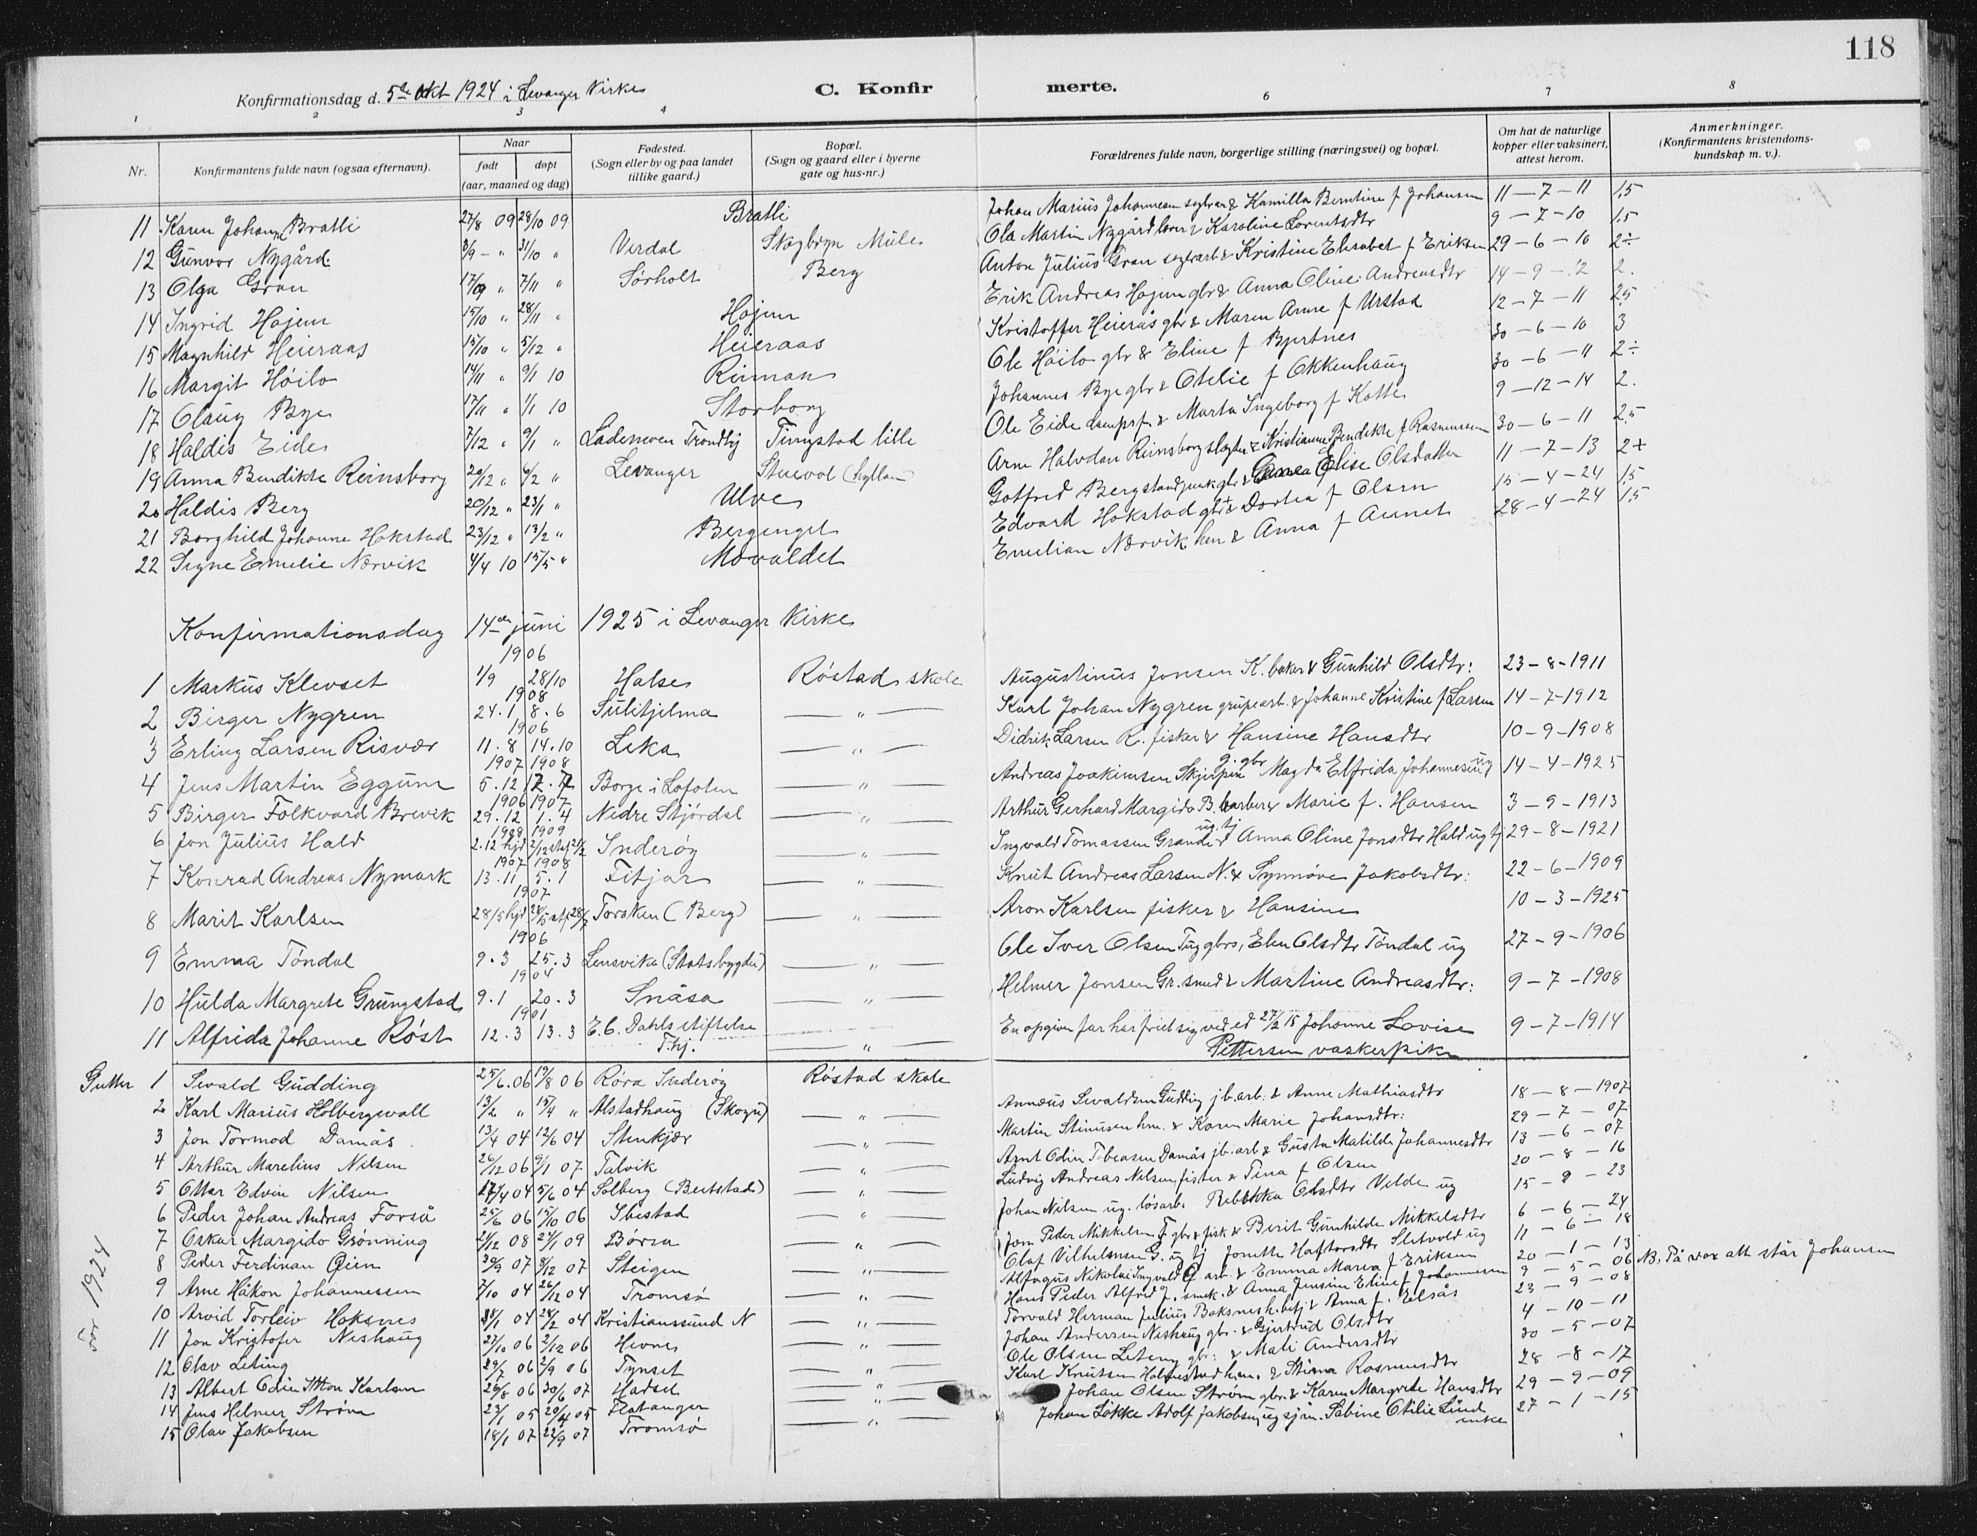 118
Konfirmationsdag d. 5te Okt 1924 i Levanger Kirke C. Konfirmerte.
1 2 3 4 6 7 8
Nr. Konfirmantens fulde navn (ogsaa efternavn). Naar født døpt (aar, maaned og dag) Fødested. (Sogn eller by og paa landet tillike gaard.) Bopæl. (Sogn og gaard eller i byerne gate og hus-nr.) Forældrenes fulde navn, borgerlige stilling (næringsvei) og bopæl. Om hat de naturlige kopper eller vaksinert, attest herom. Anmerkninger. (Konfirmantens kristendomskundskap m. v.).
11 Karen Johanne Bratli 27/8 09 28/10 09 Bratli Johan Marius Johannesen & Kamilla Berntine f Johansen 11-7-11 1.5
12 Gunvor Nygård 3/9 - " 31/10 " Verdal Skogbryn Mule Ola Martin Nygård lærer & Karoline Lorentsdtr 9-7-10 1.5
13 Olga Gran 17/9 " 7/11 " Sørholt Berg Anton Julius Gran & Kristine Elisabet f Eriksen 29-6-10 2÷
14 Ingrid Højem 15/10 " 28/11 " Højem Erik Andreas Højem gbr & Anna Oline Andreasdtr 14-9-12 2.
15 Magnhild Heieraas 15/10 " 5/12 " Heieraas Kristoffer Heierås gbr & Maren Anne f Urstad 12-7-11 2.5
16 Margit Höilo 14/11 " 9/1 10 Rinnan Ole Höilo gbr & Eline f Bjertnes 30-6-10 3
17 Olaug Bye 17/11 " 1/1 10 Storborg Johannes Bye gbr & Otelie f Okkenhaug 30-6-11 2÷
18 Haldis Eide 7/12 " 9/1 " Lademoen Trondhj Tingstad lille Ole Eide & Marta Ingeborg f Kotte 9-12-14 2.
19 Anna Bendikte Reinsborg 20/12 " 6/2 " Levanger Stuevol Arne Halvdan Reinsborg & Kristianne Bendikte f Rasmussen 30-6-11 2.5
20 Haldis Berg 20/12 " 23/1 " Ulve Gotfred Berg gbr & Elise Olsdatter 11-7-13 2+
21 Borghild Johanne Hokstad 23/12 " 13/2 " Bergenget Edvard Hokstad gbr & Dortea f Olsen 15-4-24 1.5
22 Signe Emelie Nærvik 4/4 10 15/5 " Movaldet Emilian Nærvik hm & Anna f Aunet 28-4-24 1.5
Konfirmationsdag 14de juni 1925 i Levanger Kirke
1906
1 Markus Klevset 1/9 28/10 Halse Røstad skole Augustinus Jonsen K. baker & Gunhild Olsdtr: 23-8-1911
1908
2 Birger Nygren 24.1 8.6 Sulitjelma — " — Karl Johan Nygren grubearb. & Johanne Kristine f Larsen 14-7-1912
1906
3 Erling Larsen Risvær 11.8 14.10 Leka — " — Didrik Larsen R. fisker & Hansine Hansdtr 10-9-1908
1907 1908
4 Jens Martin Eggum 5.12 12.7 Borge i Lofoten — " — Andreas Joakimsen Skjerpen g. gbr Magda Elfrida Johannesen ug 14-4-1925
1906 1907
5 Birger Folkvard Brevik 29.12 1.4 Nedre Stjördal — " — Arthur Gerhard Margido B. barber & Marie f. Hansen 3-9-1913
1908 1909
6 Jon Julius Hald 2.12 hjd Inderøy — " — Ingvald Tomassen Grande ug. tj & Anna Oline Jonsdtr Hald ug tj 29-8-1921
1907 1908
7 Konrad Andreas Nymark 13.11 5.1 Fitjar — " — Knut Andreas Larsen N. & Synnöve Jakobsdtr: 22-6-1909
1907
8 Marit Karlsen 28/5 hjd Torsken (Berg) — " — Aron Karlsen fisker & Hansine 10-3-1925
1906
9 Emma Töndel 9.3 25.3 Lensvik (Statsbygden) — " — Ole Iver Olsen T ug gbrs, Elen Olsdtr Töndel ug 27-9-1906
1904
10 Hulda Margrete Grungstad 9.1 20.3 Snåsa — " — Helmer Jonsen Gr. smed & Martine Andreasdtr: 9-7-1908
1901
11 Alfrida Johanne Røst 12.3 13.3 E.C. Dahls stiftelse Thj. — " — En opgiven far har friet sig ved ed 27/2 15 Johanne Lovise Pettersen vaskerpike 9-7-1914
Gutter
1 Sevald Gudding 25/6.06 19/8 06 Røra Inderøy Røstad skole Annæus Sevaldsen Gudding jb.arb: & Anne Mathiasdtr 18-8-1907
2 Karl Marius Holbergsvall 13/2 " 15/4 " Alstadhaug (Skogn) — " — Martin Stinusen hm. & Karen Marie Johansdtr: 29-7-07
3 Jon Tormod Damås 13/4 04 12/6 04 Stenkjær " Arnt Odin Tobeasen Damås jb.arb & Gusta Matilde Johannesdtr 13-6-07
4 Arthur Marelius Nilsen 26/12 06 9/1 07 Talvik " Ludvig Andreas Nilsen fisker & Tina f Olsen 20-8-16
5 Ottar Edvin Nilsen 17/4 04 5/6 04 Solberg (Beitstad) " Johan Nilsen ug. lösarb. Rebekka Olsdtr Velde ug 15-9-23
6 Peder Johan Andreas Forså 25/6 06 15/10 06 Ibestad " Jon Peder Mikkelsen F gbr & fisk & Berit Gunhilde Mikkelsdtr 6-6-24
7 Oskar Margido Grönning 21/12 08 27/1 09 Börsa " Olaf Vilhelmsen G. ug tj Jonette Haftorsdtr Sletvold ug 11-6-18
8 Peder Ferdinan Öien 30/9 07 8/12 07 Steigen " Alfagus Nikolai Ingvald Ö arb. & Emma Maria f Eriksen 20-1-13
9 Arne Håkon Johannessen 7/10 04 26/12 04 Tromsö " Hans Peder Alfred J. smed. & Anna Jensine Eline f Johannesen 9-5-06 NB. På vax att står Johansen
10 Arvid Torleiv Hoksnes 8/1 04 28/2 04 Kristianssund N " Torvald Herman Julius Hoksnes h.betj & Anna f. Eelsås 23-9-08
11 Jon Kristofer Neshaug 27/10 06 2/12 06 Hevne " Johan Andersen Neshaug gbr. & Gjertrud Olsdtr 4-10-11
12 Olav Leting 29/7 06 2/9 06 Tynset " Ole Olsen Leteng gbr: & Mali Andersdtr 30-5-07
13 Albert Odin Karlsen 26/8 06 30/6 07 Hadsel " Karl Knutsen hm. & Stina Rasmusdtr 28-8-17
14 Jens Helmer Ström 23/1 05 20/4 05 Flatanger " Johan Olsen Ström gbr. & Karen Margrete Hansdtr 29-9-09
15 Olav Jakobsen 18/1 07 22/9 07 Tromsö " Johan Lökke Adolf Jakobsen ug sjm. Sabine Otilie Lund enke 27-1-15
vår 1924